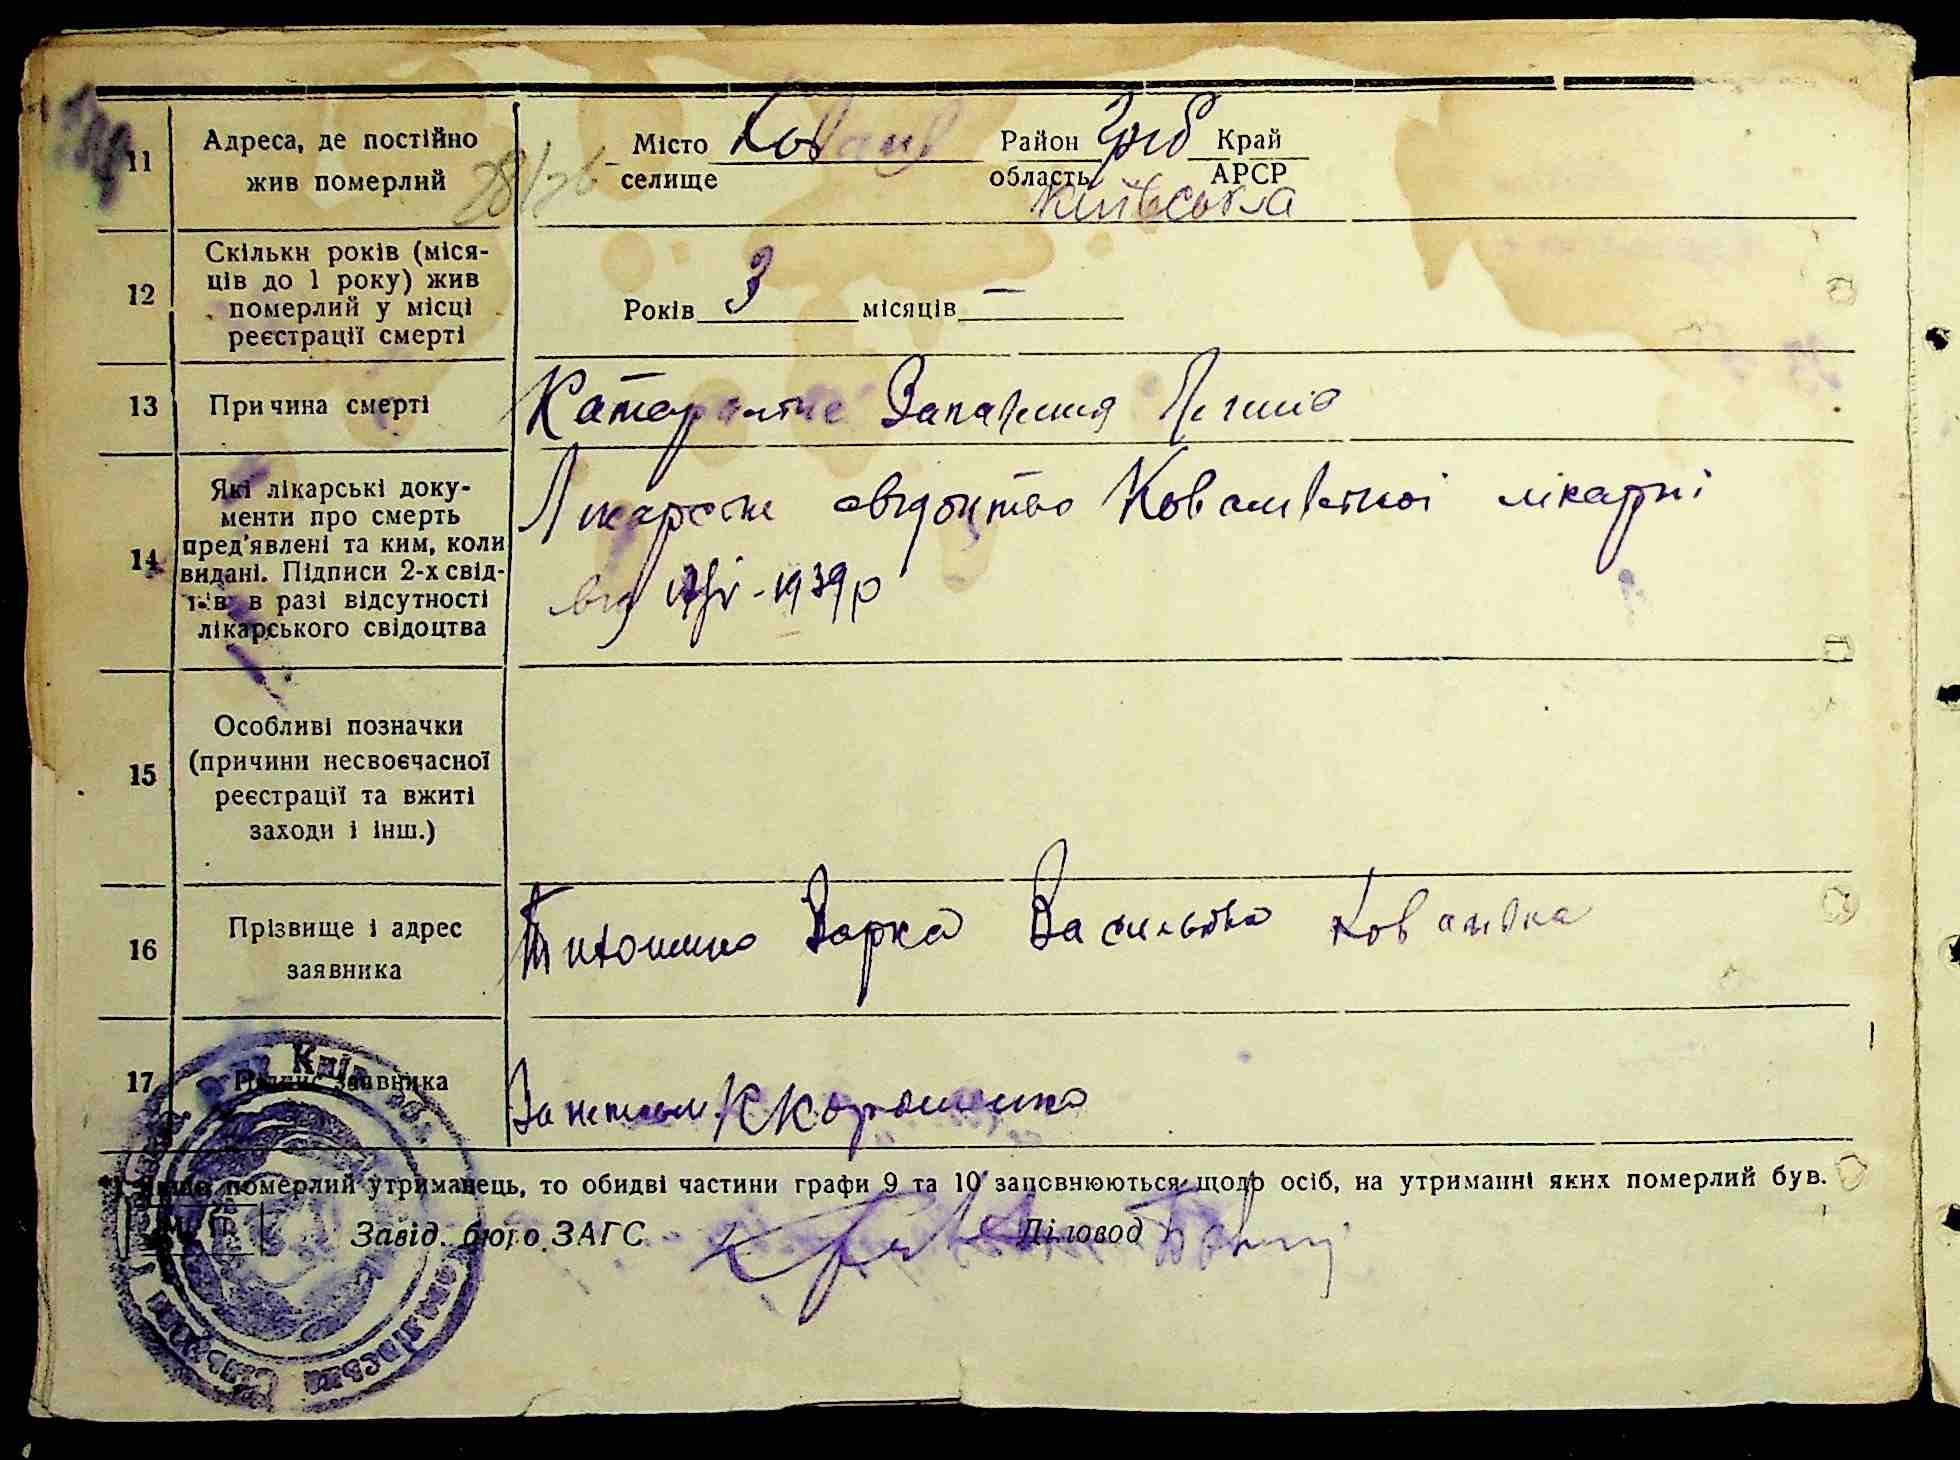 11
Адреса, де постійно
жив померлий
Місто
селище
Район Греб
область
Київська
Край
АРСР
12
Скільки років (міся-
ців до 1 року) жив
померлий у місці
реєстрації смерті
Років 3 місяців —
13
Причина смерті
Катаральне Запалення Легенів
14
Які лікарські доку-
менти про смерть
пред'явлені та ким, коли
видані. Підписи 2-х свід-
ків в разі відсутності
лікарського свідоцтва
Лікарське свідоцтво Ковалівської лікарні
від 1939р
15
Особливі позначки
(причини несвоєчасної
реєстрації та вжиті
заходи і інш.)
16
Прізвище і адрес
заявника
Варка Васильівна Ковалівка
17
Підпис заявника
За неписьм.
*) Якщо померлий утриманець, то обидві частини графи 9 та 10 заповнюються щодо осіб, на утриманні яких померлий був.
Завід. бюро ЗАГС
Діловод